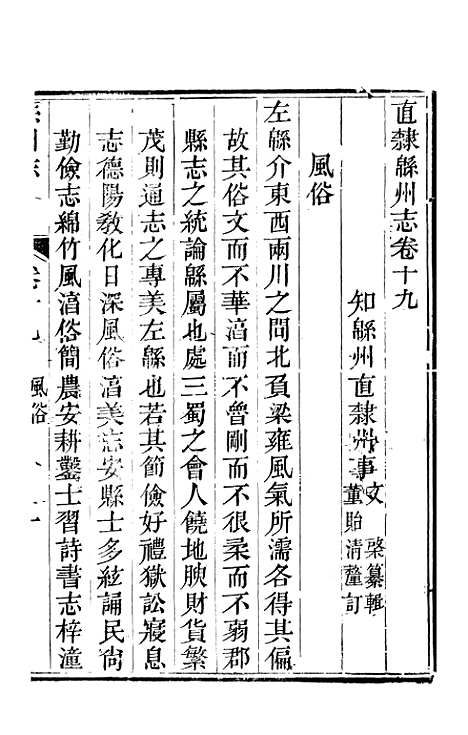 直隸緜州志卷十九
知緜州直隸州事文棨纂輯
董貽清釐訂
風俗
左緜介東西兩川之間北負梁雍風氣所濡各得其偏
故其俗文而不華湻而不魯剛而不很柔而不弱郡
縣志之統論緜屬也處三蜀之會人饒地腴財貨繁
茂則通志之專美左緜也若其節儉好禮獄訟寢息
志德陽敎化日深風俗湻美志安縣士多絃誦民尙
勤儉志綿竹風湻俗簡農安耕鑿士習詩書志梓潼
州志
卷十九
風俗
一